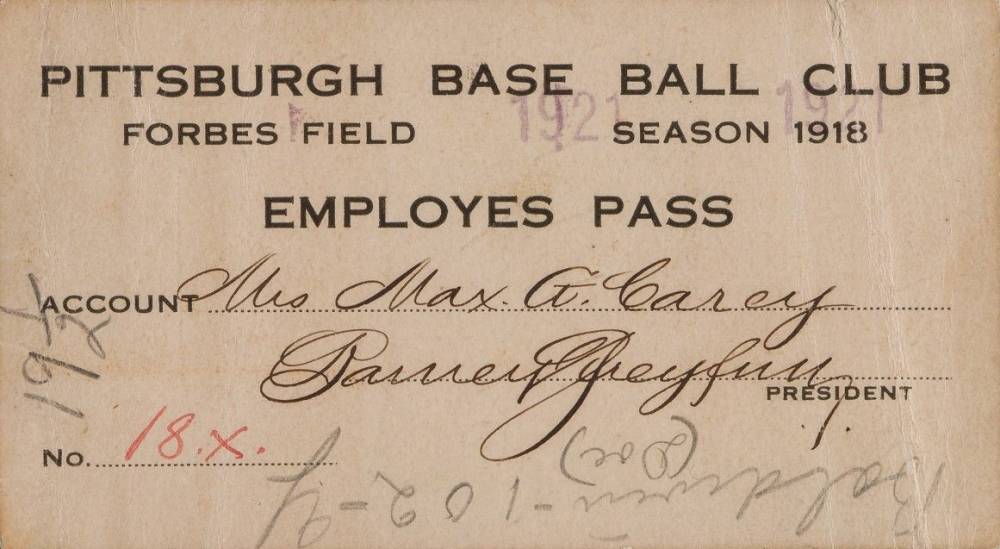 PITTSBURGH BASE BALL CLUB
1921 1921
FORBES FIELD SEASON 1918
EMPLOYES PASS
ACCOUNT Mrs Max. G. Carey
Barney Dreyfuss
PRESIDENT
No. 18.X.
1921
Baldwin-102-J